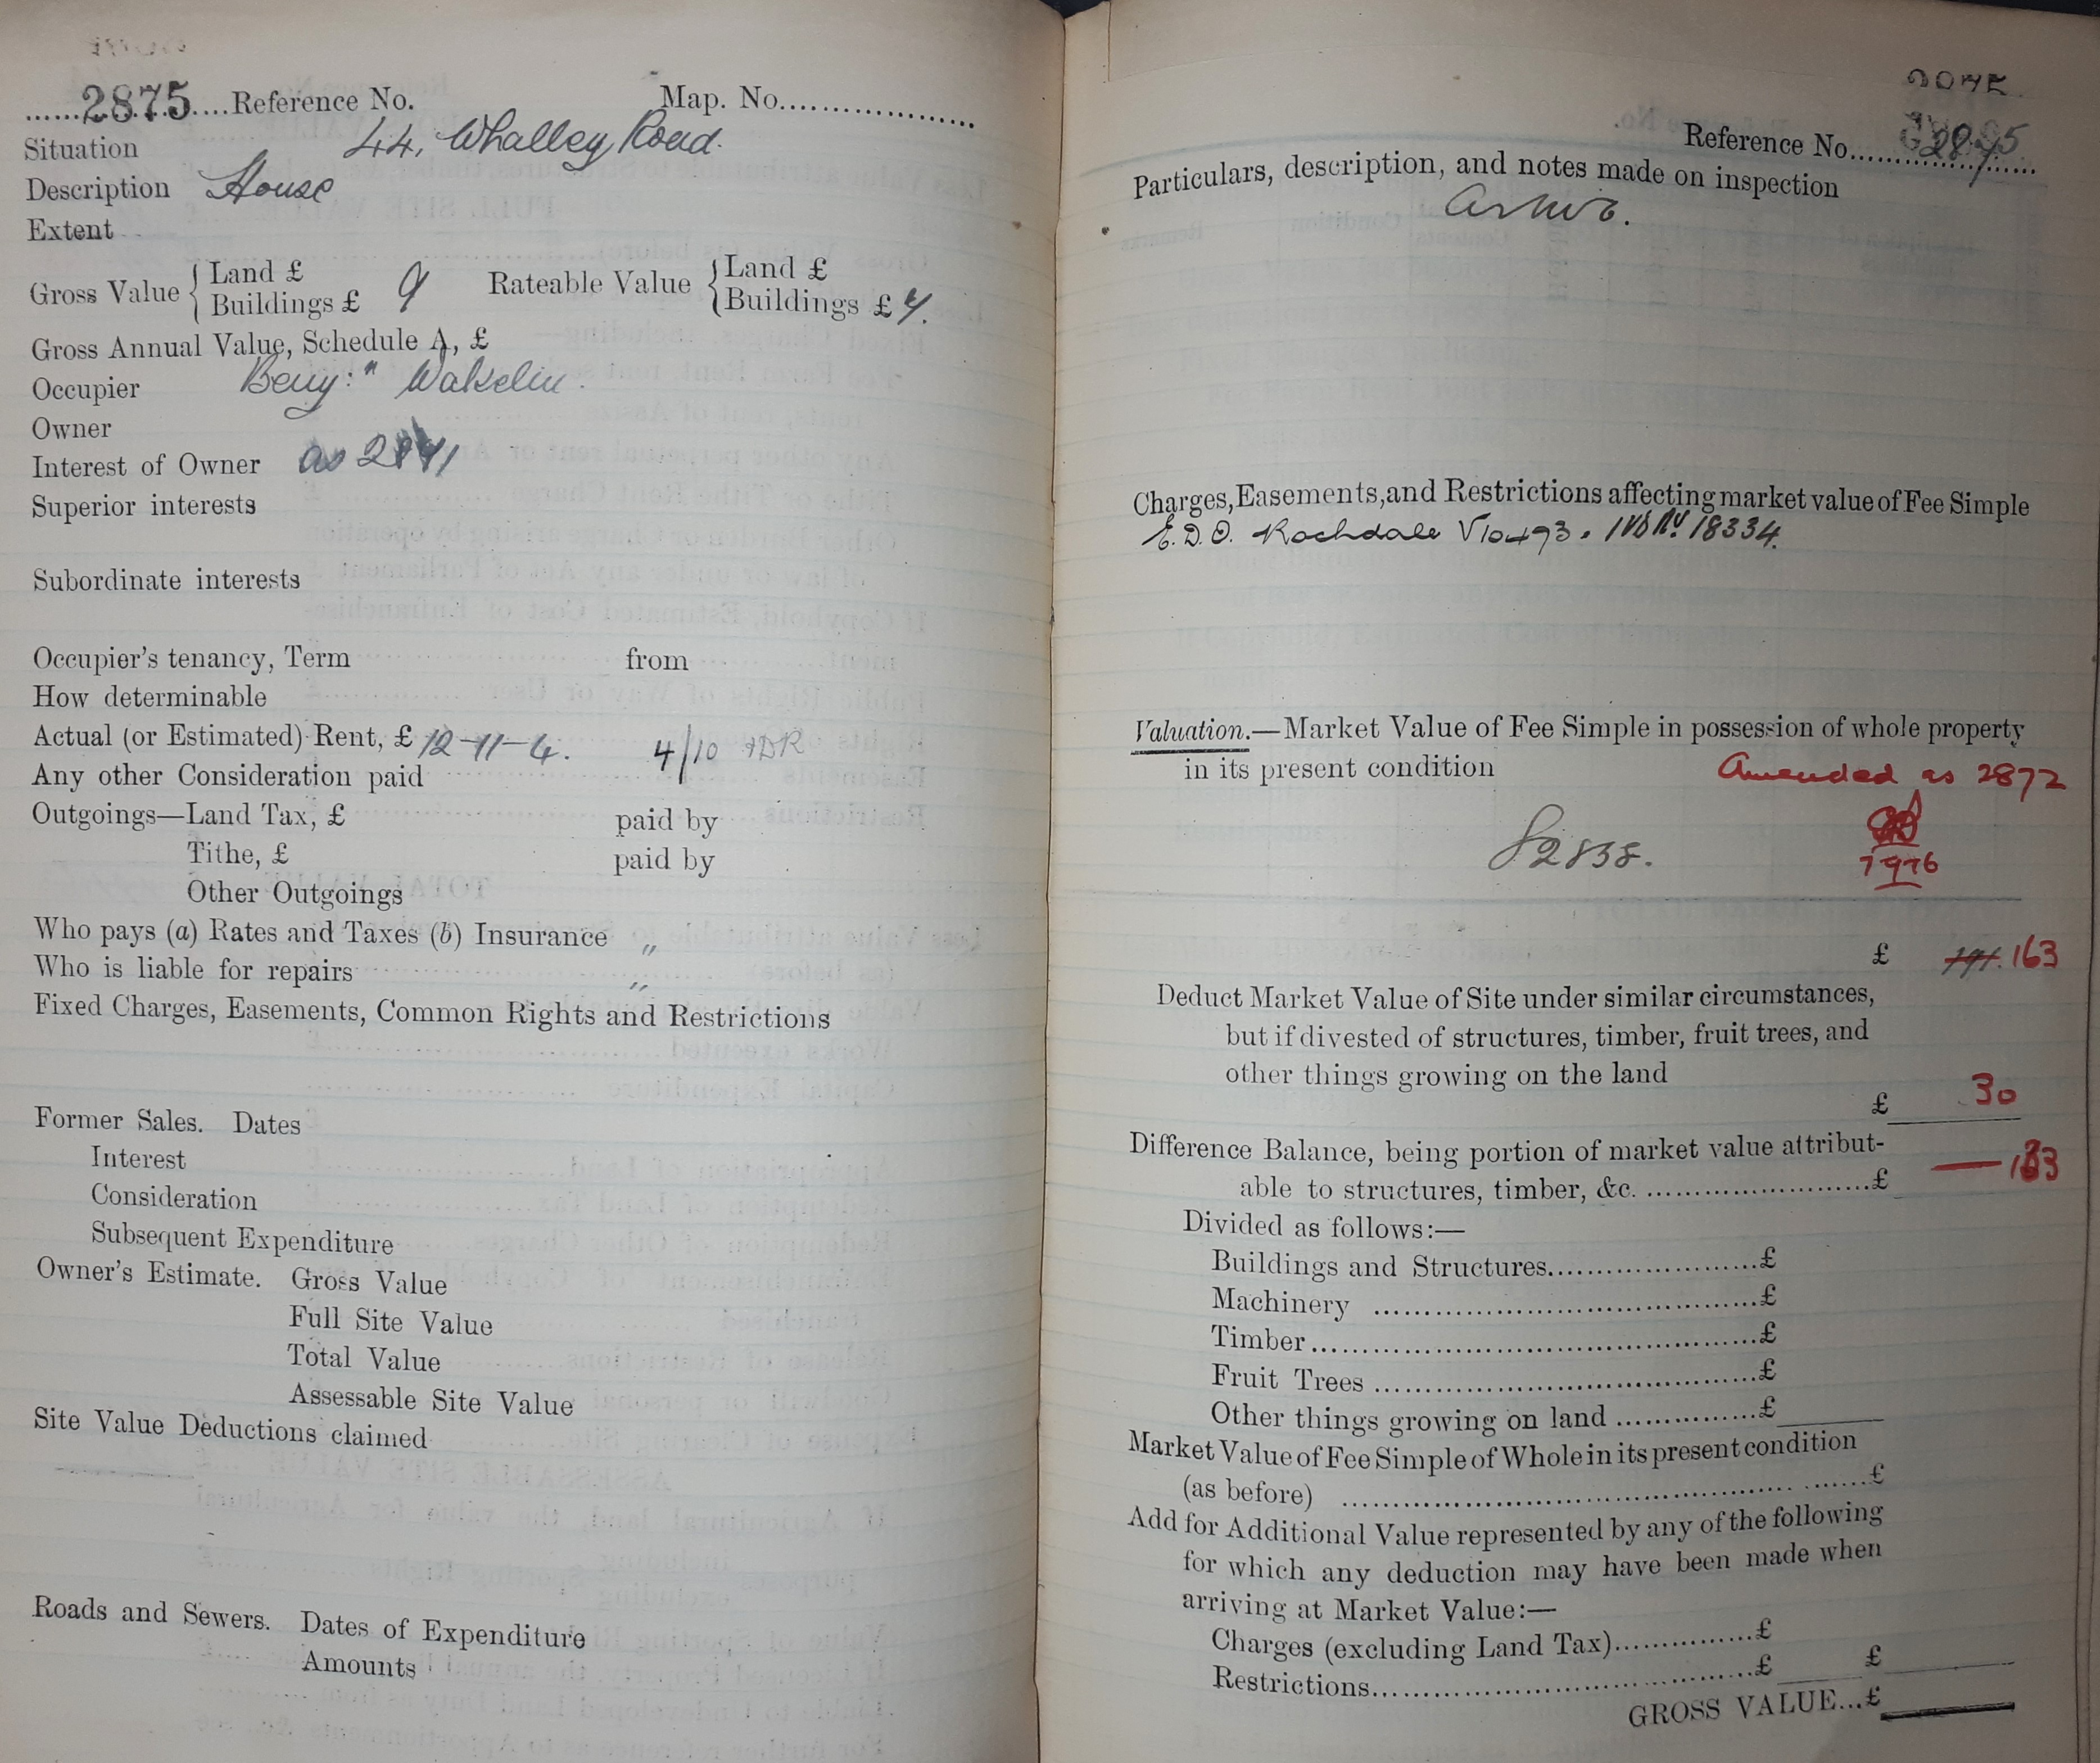 2875 Reference No. Map. No.
Situation 44, Whalley Road.
Description House
Extent
Gross Value { Land £
Buildings £ 9
Rateable Value { Land £
Buildings £ 7.
Gross Annual Value, Schedule A, £
Occupier Benj:n Wakelin.
Owner
Interest of Owner as 2841
Superior interests
Subordinate interests
Occupier's tenancy, Term from
How determinable
Actual (or Estimated) Rent, £ 12-11-4. 4/10
Any other Consideration paid
Outgoings—Land Tax, £ paid by
Tithe, £ paid by
Other Outgoings
Who pays (a) Rates and Taxes (b) Insurance "
Who is liable for repairs "
Fixed Charges, Easements, Common Rights and Restrictions
Former Sales. Dates
Interest
Consideration
Subsequent Expenditure
Owner's Estimate. Gross Value
Full Site Value
Total Value
Assessable Site Value
Site Value Deductions claimed
Roads and Sewers. Dates of Expenditure
Amounts
Reference No. 2875
Particulars, description, and notes made on inspection
Charges, Easements, and Restrictions affecting market value of Fee Simple
E.D.O. Rochdale 18334.
Valuation.—Market Value of Fee Simple in possession of whole property
in its present condition
Amended as 2872
2838.
7 9 16
£ 191. 163
Deduct Market Value of Site under similar circumstances,
but if divested of structures, timber, fruit trees, and
other things growing on the land
£ 30
Difference Balance, being portion of market value attribut-
able to structures, timber, &c. £ 133
Divided as follows:—
Buildings and Structures £
Machinery £
Timber £
Fruit Trees £
Other things growing on land £
Market Value of Fee Simple of Whole in its present condition
(as before) £
Add for Additional Value represented by any of the following
for which any deduction may have been made when
arriving at Market Value:—
Charges (excluding Land Tax) £
Restrictions £ £
GROSS VALUE...£